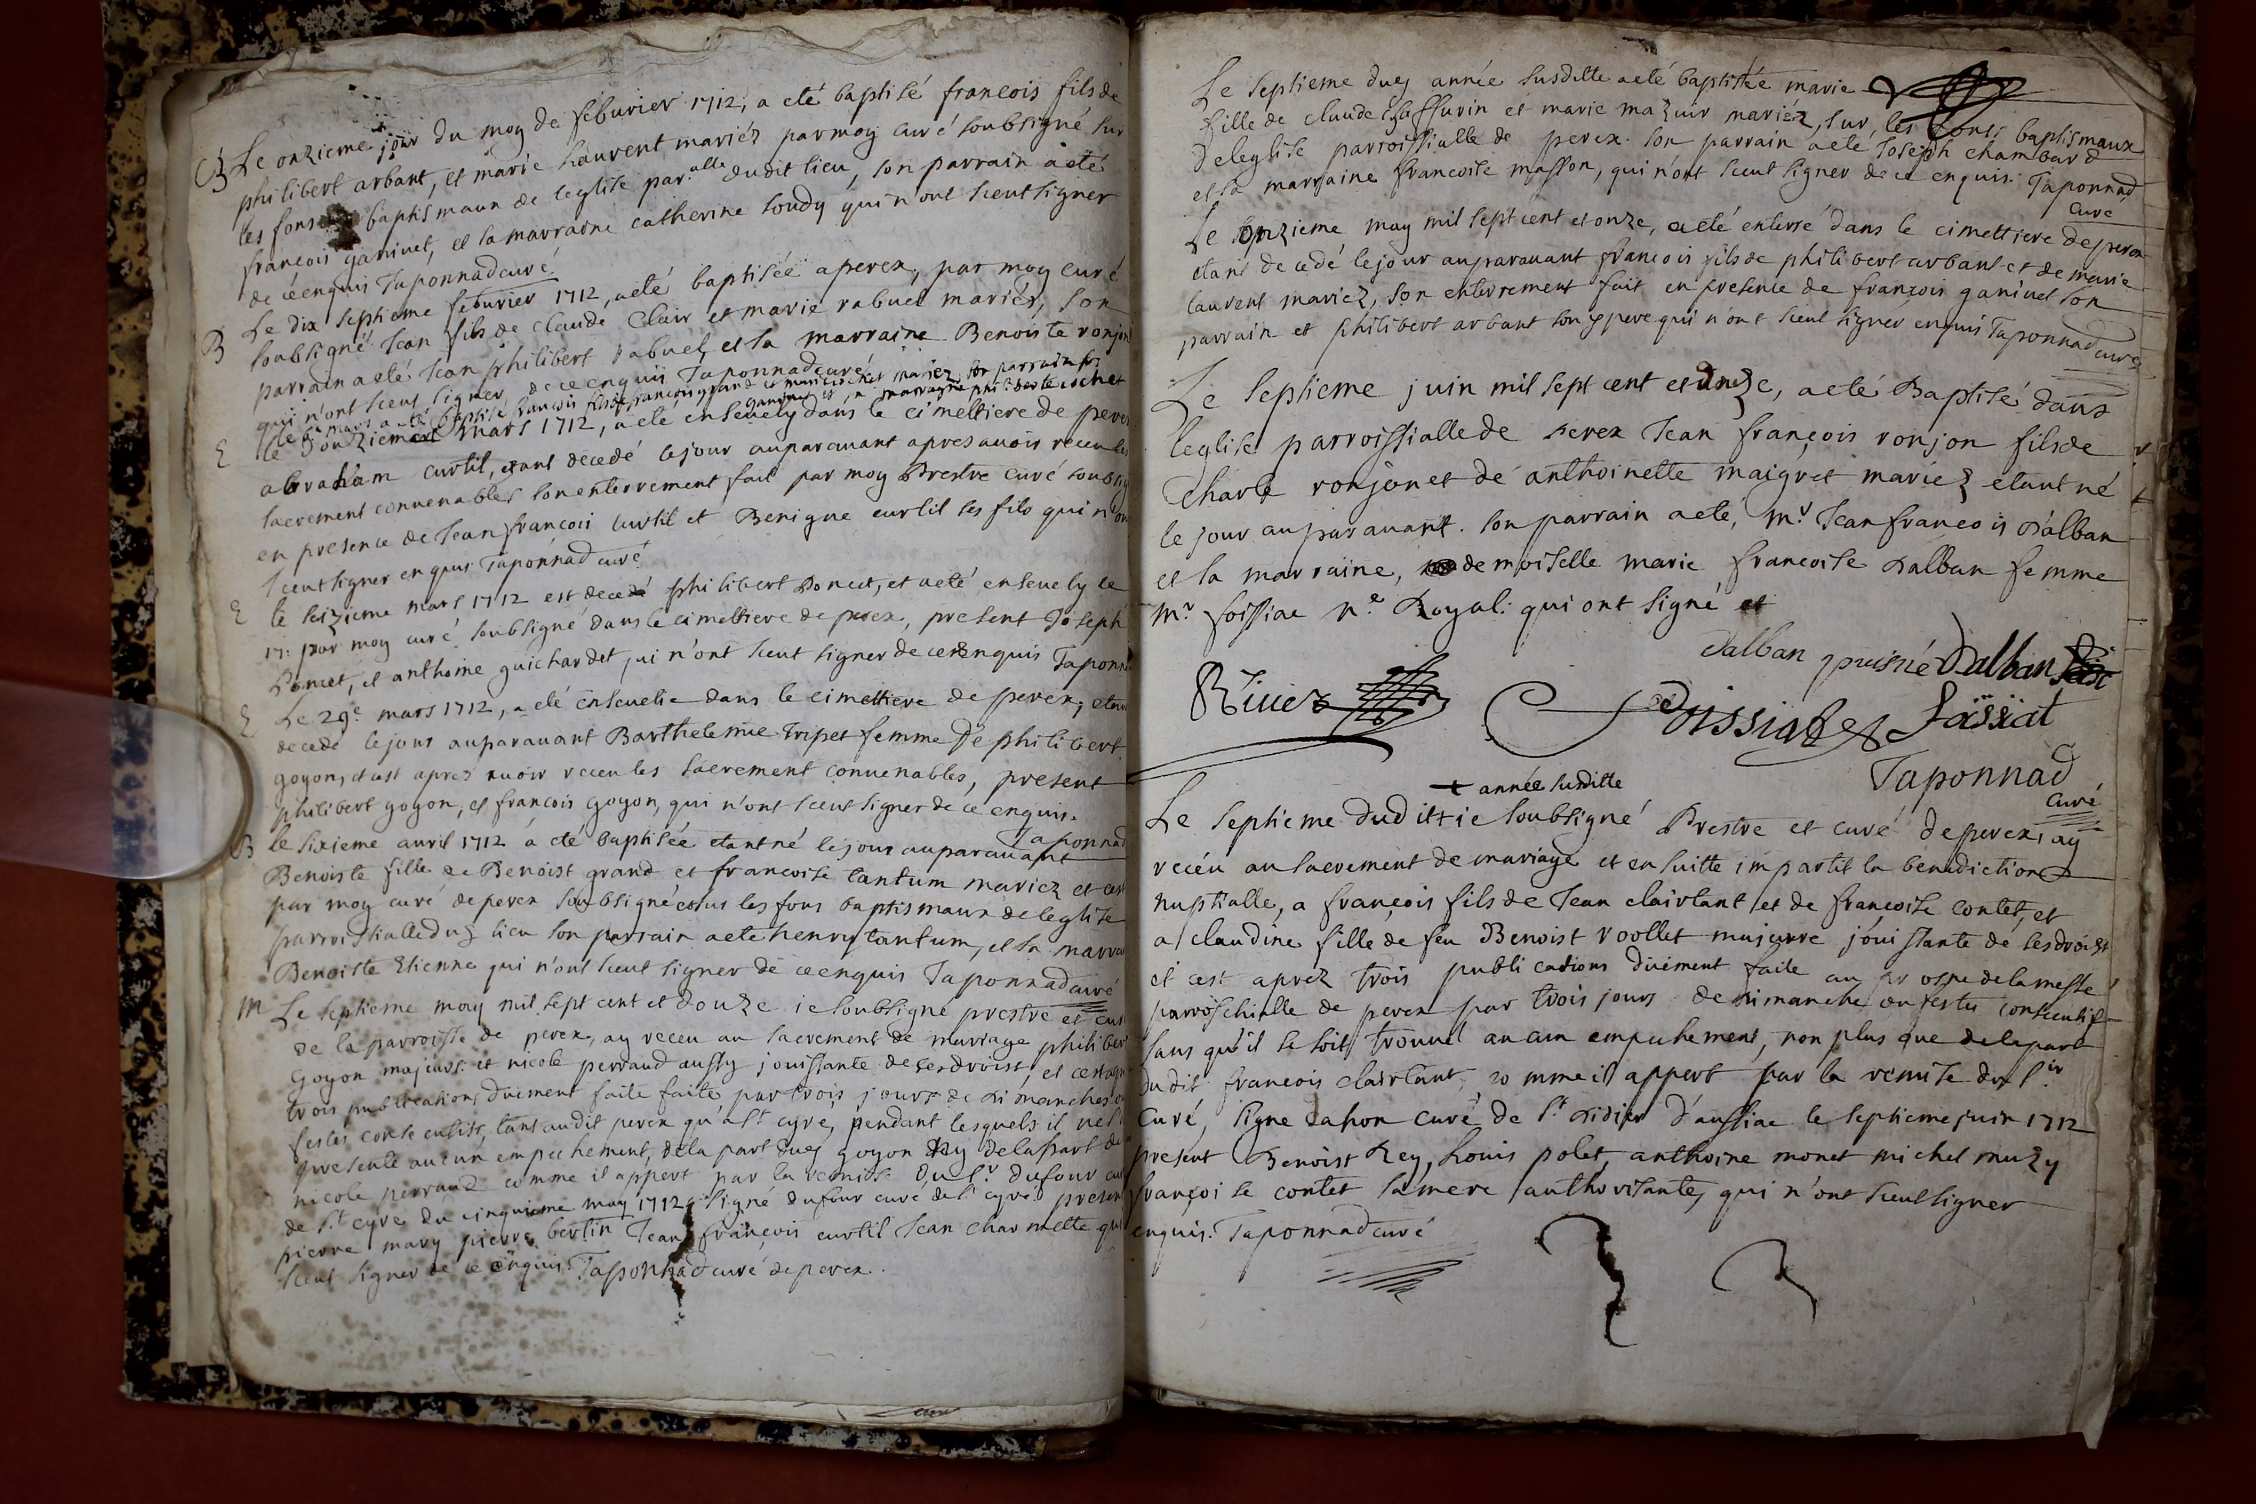 B Le onzieme jour du moy de feburier 1712, a eté baptisé francois fils de
philibert arbant, et marie laurent mariéz par moy curé soubsigné sur
les fons baptismaux de leglise par.alle dudit lieu, son parrain a eté
francois ganivet, et la marraine catherine soudy qui n'ont sceut signer
de ce enquis Taponnad curé
B Le dix septieme feburier 1712, a eté baptisée a perex, par moy curé
soubsigné Jean fils de Claude Clair et marie rabuel mariéz, son
parrain a eté Jean philibert rabuel, et la marraine Benoiste ronjon
qui n'ont sceut signer de ce enquis Taponnad curé
mars a eté baptisé francois fils de francois grand et marie cochet mariez, son parrain
ganivet et sa marraine cochet
E le onzieme mars 1712, a eté ensevely dans le cimettiere de perex
abraham curtil, etant decedé le jour auparavant apres avoir receu les
sacrement convenables son enterrement fait par moy Prestre curé soubsig
en presence de Jean francois Curtil et Benigne curtil ses fils qui n'ont
sceut signer enquis Taponnad curé
E le seizieme mars 1712 est decedé philibert Poncet, et a eté ensevely le
17: par moy curé soubsigné dans le cimettiere de perex, present Joseph
Poncet, et anthoine guichardet qui n'ont sceut signer de ce enquis Taponna
E Le 29e mars 1712, a eté ensevelie dans le cimettiere de perex, etant
decedé le jour auparavant Barthelemie Tripet femme de philibert
goyon, et cest aprez avoir receu les sacrement convenables, present
philibert goyon, et francois goyon, qui n'ont sceut signer de ce enquis.
Taponnad
B le sixieme avril 1712 a eté baptisée etant né le jour auparavant
Benoiste fille de Benoist grand et francoise tantum mariez et cest
par moy curé de perex soubsigné sus les fons baptismaux de leglise
parroissialle dud lieu son parrain a ete henry tantum, et sa marra
Benoiste Etienne qui n'ont sceut signer de ce enquis Taponnad curé
M Le septieme may mil sept cent et douze ie soubsigné prestre et curé
de la parroisse de perex, ay receu au sacrement de mariage philiber
Goyon majeur et nicole perraud aussy jouissante de ses droist, et cest apre
trois publications duement faite faite par trois jours de dimanches ou
festes consecutifs, tant audit perex qu'a st cyre, pendant lesquels il nes
presenté aucun empechement, dela part dud goyon ny dela part de
nicole perraud comme il appert par la remise du sr dufour cu
de st cyre du cinquieme may 1712 signé dufour curé de st cyre present
pierre mary pierre bertin Jean francois curtil Jean charmette qui
sceut signer de ce enquis Taponnad curé de perex.
Le septieme dud année susditte a eté baptisée marie
fille de claude chaffurin et marie mazuir mariéz, sur les fonts baptismaux
de leglise parroissialle de perex. son parrain a eté Joseph chambard
et sa marraine francoise masson, qui n'ont sceut signer de ce enquis. Taponnad
curé
Le onzieme may mil sept cent et onze, a eté enterré dans le cimettiere de perex
etant decedé le jour auparavant francois fils de philibert arbant et de marie
laurent mariez, son enterrement fait en presence de françois ganivet son
parrain et philibert arbant son pere qui n'ont sceut signer enquis Taponnad curé
Le septieme juin mil sept cent et onze, a eté Baptisé dans
leglise parroissialle de perex Jean françois ronjon fils de
Charle ronjon et de anthoinette maigret mariéz etant né
le jour auparavant. son parrain a ete, mr. Jean francois d'alban
et la marraine, demoiselle marie francoise dalban femme
mr. soissiac ne Royal: qui ont signé et
Dalban puisné Dalban
Rivier Soissiat Sassiat
Taponnad
curé
+ année susditte
Le septieme dudit + ie soubsigné Prestre et curé de perex, ay
recéu au sacrement de mariage et ensuitte impartit la benediction
nuptialle, a françois fils de Jean clairtant et de françoise contet, et
a claudine fille de feu Benoist voollet majeurre jouissante de ses droist
et cest aprez trois publications duement faite au prosne de la messe
parroischialle de perex par trois jours de dimanche ou festes consecutif
sans qu'il se soit trouvé aucun empechement, non plus que dela part
dudit francois clairtant, comme il appert par la remise du sir
Curé, signe dahon curé de st didier d'aussiac le septieme juin 1712
present Benoist Rey, Louis polet, anthoine monet michel muzy
françoise contet sa mere authorisante, qui n'ont sceut signer
enquis. Taponnad curé